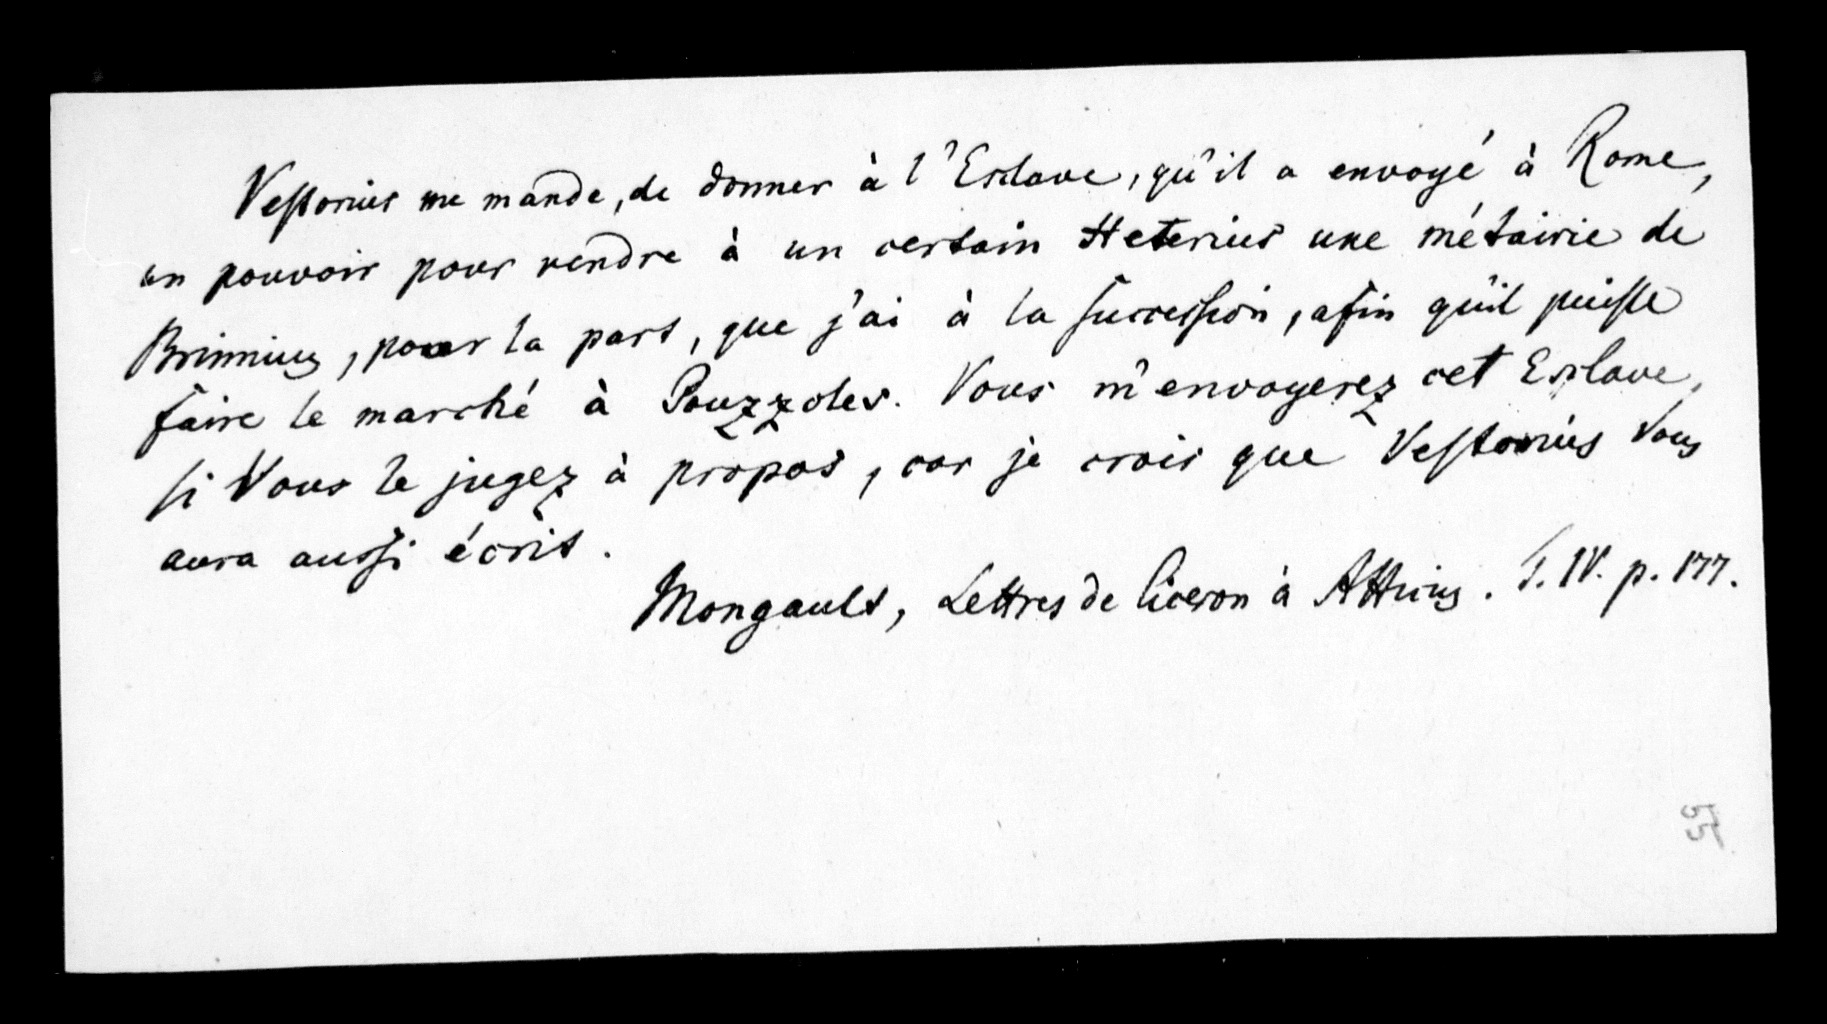 Vestorius me mande, de donner à l'Esclave, qu'il a envoyé à Rome,
un pouvoir pour vendre à un certain Heterius une métairie de
Brinnius, pour la part, que j'ai à la succession, afin qu'il puisse
faire le marché à Pouzzoles. Vous m'envoyerez cet Esclave,
si Vous le jugez à propos, car je crois que Vestorius Vous
aura aussi écrit.
Mongault, Lettres de Ciceron à Atticus. T. IV. p. 177.